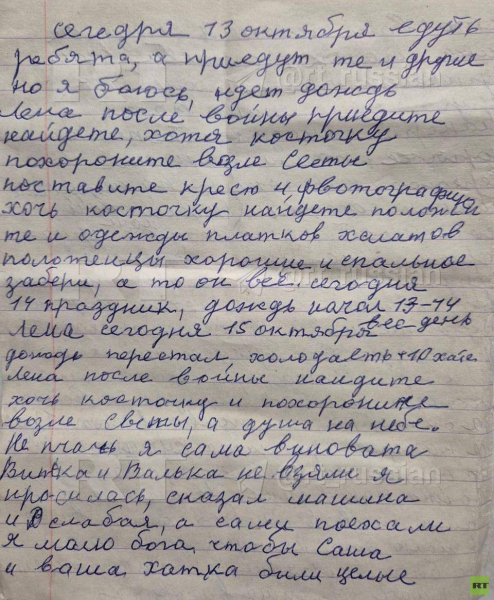 сегедря 13 октября едуть
ребята, а приедут те и другие
но я боюсь, идет дождь
Лена после войны приедите
найдете, хотя косточку
похороните возле Светы
поставите крест и фвотографию
хочь косточку найдете положи
те и одежды платков халатов
полотенцы хорошие и спальное
забери, а то он всё, сегодня
14 праздник, дождь начал 13-14
весь день
Лена сегодня 15 октября
дождь перестал холодаеть +10 хате
Лена после войны наидите
хоч косточку и похороните
возле Светы, а душа на небе.
Не плачь я сама виновата
Витька и Валька не взяли я
просилась, сказал машина
и слабая, а сами поехали
я малю бога чтобы Саша
и ваша хатка били целые
@rt_russian
RT